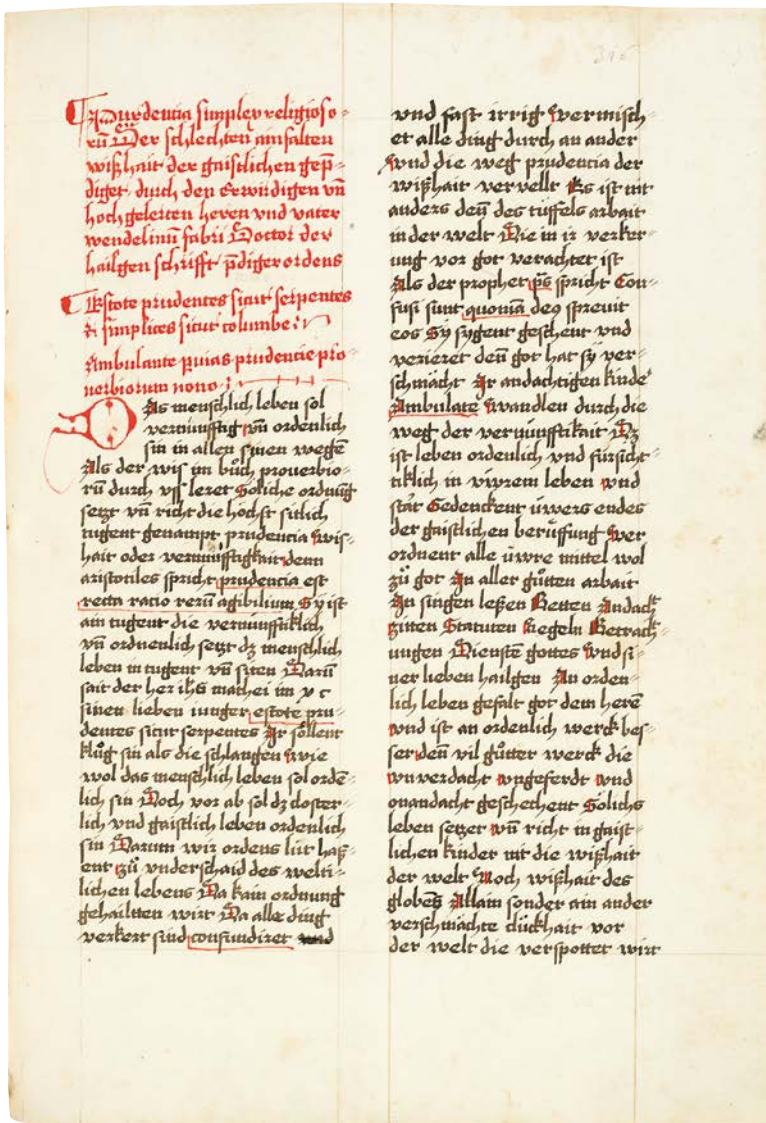 Prudencia simplex religioso
rū Der schlechten ainfalten
wißhait der gaistlichen gep̄
diget durch den Erwirdigen vn̄
hoch gelerten heren vnd vater
wendelinū fabri Doctor der
hailgen schrifft p̄diger ordens
Estote prudentes sicut serpentes
& simplices sicut columbe
Ambulante p̲ uias prudencie pro
uerbiorum nono
Das menschlich leben sol
vernünfftig vn̄ ordenlich
sin in allen sinen wegē
Als der wis im bůch prouerbio
rū durch vss leret Soliche ordnūg
setzt vn̄ richt die höchst sitlich
tugent genampt prudencia wis
hait oder vernünfftigkait denn
aristotiles spricht prudencia est
recta racio rerū agibilium Sy ist
ain tugent die vernünfftiklich
vn̄ ordnenlich setzt dz menschlich
leben in tugent vn̄ siten Darū
sait der her ihs̄ mathei im x c
sinen lieben iunger estote pru
dentes sicut serpentes Ir söllent
klůg sin als die schlangen wie
wol das menschlich leben sol ordē
lich sin Doch vor ab sol dz closter
lich vnd gaistlich leben ordenlich
sin Darum wir ordens lüt haß
ent zů vnderschaid des welti
lichen lebens Da kain ordnung
gehailtten wirt Da alle ding
verkert sind confundiret
vnd fast irrig vermisch
et alle ding durch an ander
vnd die weg prudencia der
wißhait vervelt Es ist nit
anders den̄ des tüffels arbait
in der welt Die in ir verker
ung vor got verachtet ist
Als der prophet p̄s spricht Con
fusi sunt quoniā deꝯ spreuit
eos Sy sygent geschent vnd
verieret den̄ got hat sÿ ver
schmächt Ir andachtigen kinde
Ambulate wandlen durch die
weg der vernünfftikait Dz
ist leben ordenlich vnd fürsicht
tiklich in vwrem leben vnd
stät Gedenckent üwers endes
der gaistlichen berüffung ver
ordnent alle üwre mittel wol
zů got In aller gůtten arbait
In singen leßen Betten Andach
zitten Statuten Regeln Betrach
ungen Dienstē gottes vnd si
ner lieben hailgen An orden
lich leben gefalt got dem herē
vnd ist an ordenlich werck bes
ser den̄ vil gůtter werck die
vnverdacht vngeferdt vnd
onandacht geschechent Sölichs
leben setzet vn̄ richt in gaist
lichen kinder nit die wißhait
der welt Noch wißhait des
globēs Allain sonder ain ander
verschmächte clückhait vor
der welt die verspottet wirt